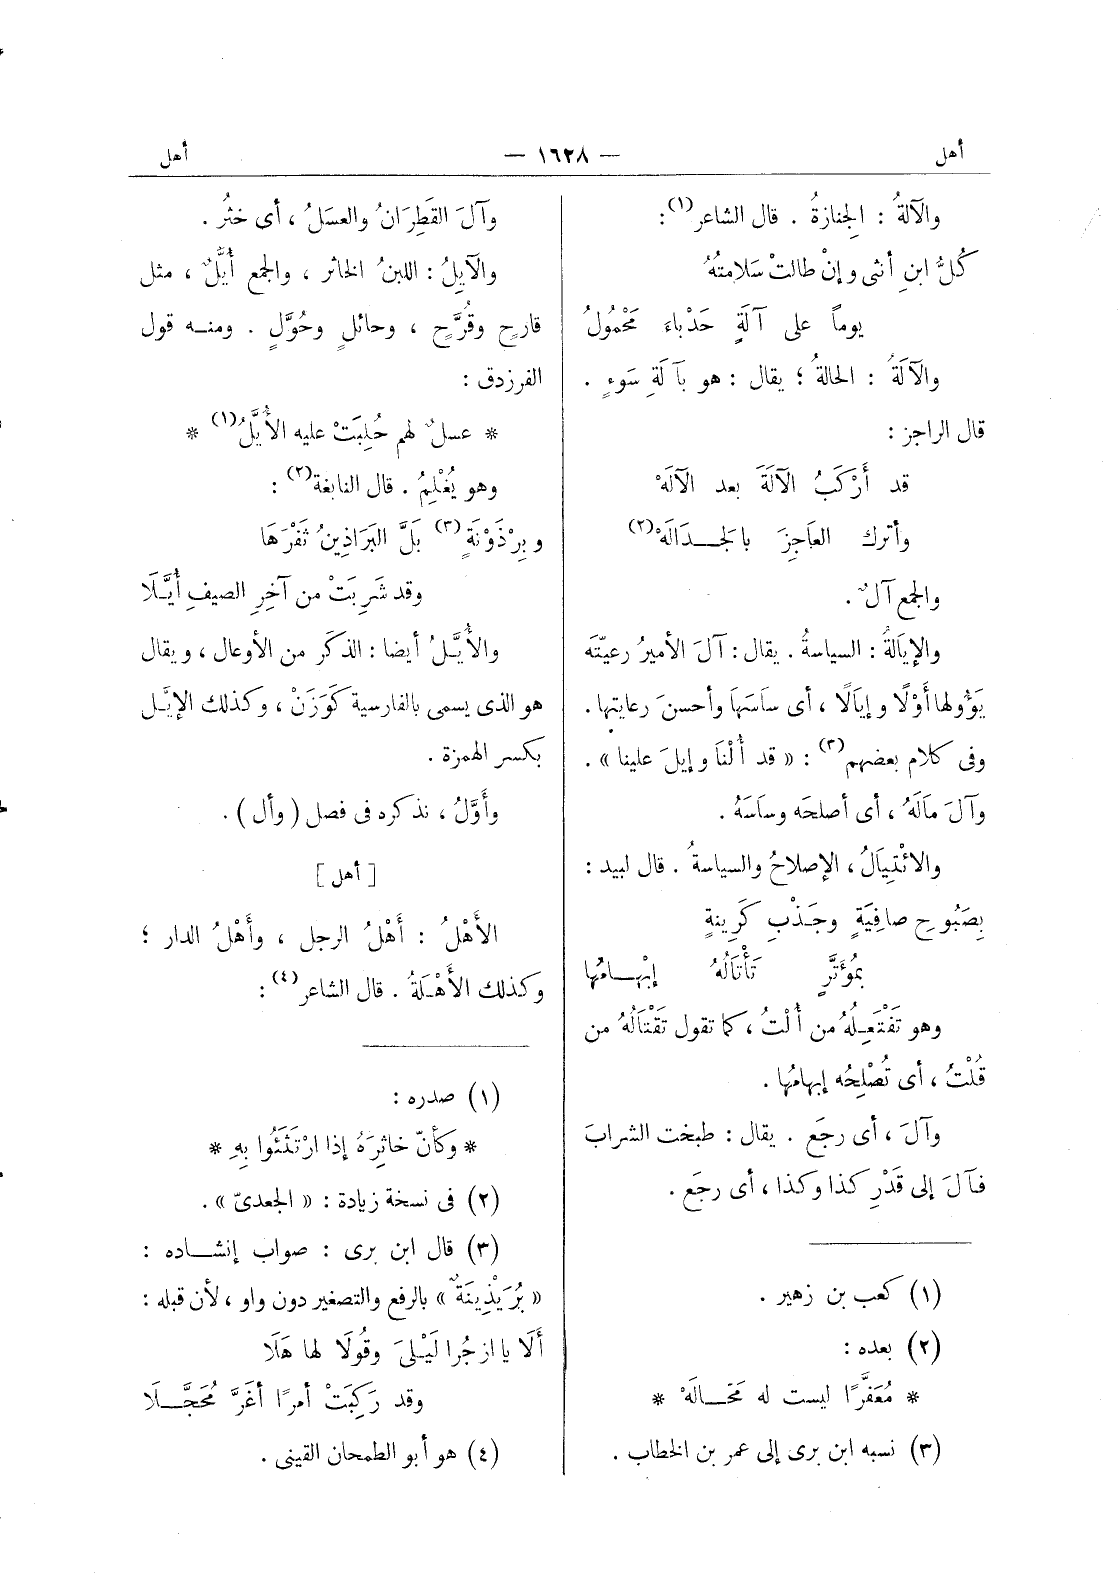 أهل — ١٦٢٨ — أهل
والآلةُ : الجِنازةُ . قال الشاعر(١) :
كُلُّ ابنِ أنثى وإنْ طالتْ سَلامتُهُ
يوماً على آلَةٍ حَدْباءَ مَحْمُولُ
والآلَةُ : الحالةُ ؛ يقال : هو بآلَةِ سَوءٍ .
قال الراجز :
قد أَرْكَبُ الآلَةَ بعد الآلَهْ
وأترك العاَجِزَ بالجَدَالَهْ(٢)
والجمع آلٌ .
والإيَالةُ : السياسةُ . يقال : آلَ الأميرُ رعيّتَه
يَؤُولها أَوْلًا وإيَالًا ، أى ساَسَهاَ وأحسنَ رعايتها .
وفى كلام بعضهم(٣) : « قد أُلْناَ وإيلَ علينا » .
وآلَ ماَلَهُ ، أى أصلحَه وساَسَهُ .
والائْتِيَالُ ، الإصلاحُ والسياسةُ . قال لبيد :
بِصَبُوحِ صافِيَةٍ وجَذْبِ كَرِينةٍ
بمُؤَتَّرٍ تَأْتَالُهُ إبْهامُها
وهو تَفْتَعِلُهُ من أُلْتُ ، كما تقول تَقْتالُهُ من
قُلْتُ ، أى تُصْلِحُه إبهامُها .
وآلَ ، أى رجَع . يقال : طبخت الشرابَ
فآلَ إلى قَدْرِ كذا وكذا ، أى رجَع .
(١) كعب بن زهير .
(٢) بعده :
* مُعَفَّرًا ليست له مَحَالَهْ *
(٣) نسبه ابن برى إلى عمر بن الخطاب .
وآلَ القَطِرَانُ والعسَلُ ، أى خثُر .
والآيِلُ : اللبنُ الخاثر ، والجمع أُيَّلٌ ، مثل
قارحٍ وقُرَّحٍ ، وحائلٍ وحُوَّلٍ . ومنه قول
الفرزدق :
* عسلٌ لهم حُلِبَتْ عليه الأُيَّلُ(١) *
وهو يُغْلِمُ . قال النابغة(٢) :
وبِرْذَوْنَةٍ(٣) بَلَّ البَرَاذِينُ ثَفْرَهَا
وقد شَرِبَتْ من آخِرِ الصيفِ أُيَّلَا
والأُيَّلُ أيضا : الذكَر من الأوعال ، ويقال
هو الذى يسمى بالفارسية كَوَزَنْ ، وكذلك الإيَّل
بكسر الهمزة .
وأَوَّلُ ، نذكره فى فصل ( وأل ) .
[ أهل ]
الأَهْلُ : أَهْلُ الرجل ، وأَهْلُ الدار ؛
وكذلك الأَهْلَةُ . قال الشاعر(٤) :
(١) صدره :
* وكأنّ خاثِرَهُ إذا ارْتَثَئُوا بِهِ *
(٢) فى نسخة زيادة : « الجعدىّ » .
(٣) قال ابن برى : صواب إنشاده :
« بُرَيْذِينَةٌ » بالرفع والتصغير دون واو ، لأن قبله :
أَلَا يا ازجُرا لَيْلىَ وقُولَا لها هَلَا
وقد رَكِبَتْ أمرًا أغَرَّ مُحَجَّلَا
(٤) هو أبو الطمحان القينى .